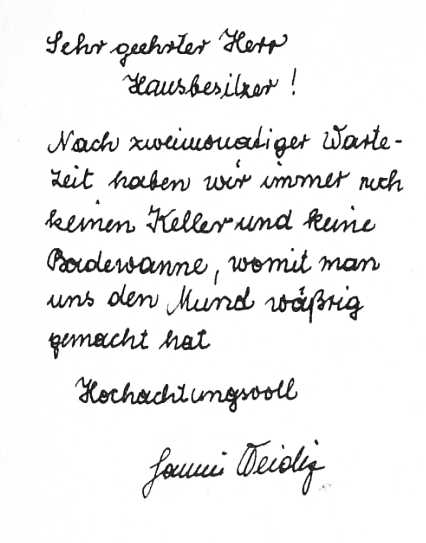 Sehr geehrter Herr
Hausbesitzer !
Nach zweimonatiger Warte-
zeit haben wir immer noch
keinen Keller und keine
Badewanne, womit man
uns den Mund wäßrig
gemacht hat
Hochachtungsvoll
Weidig